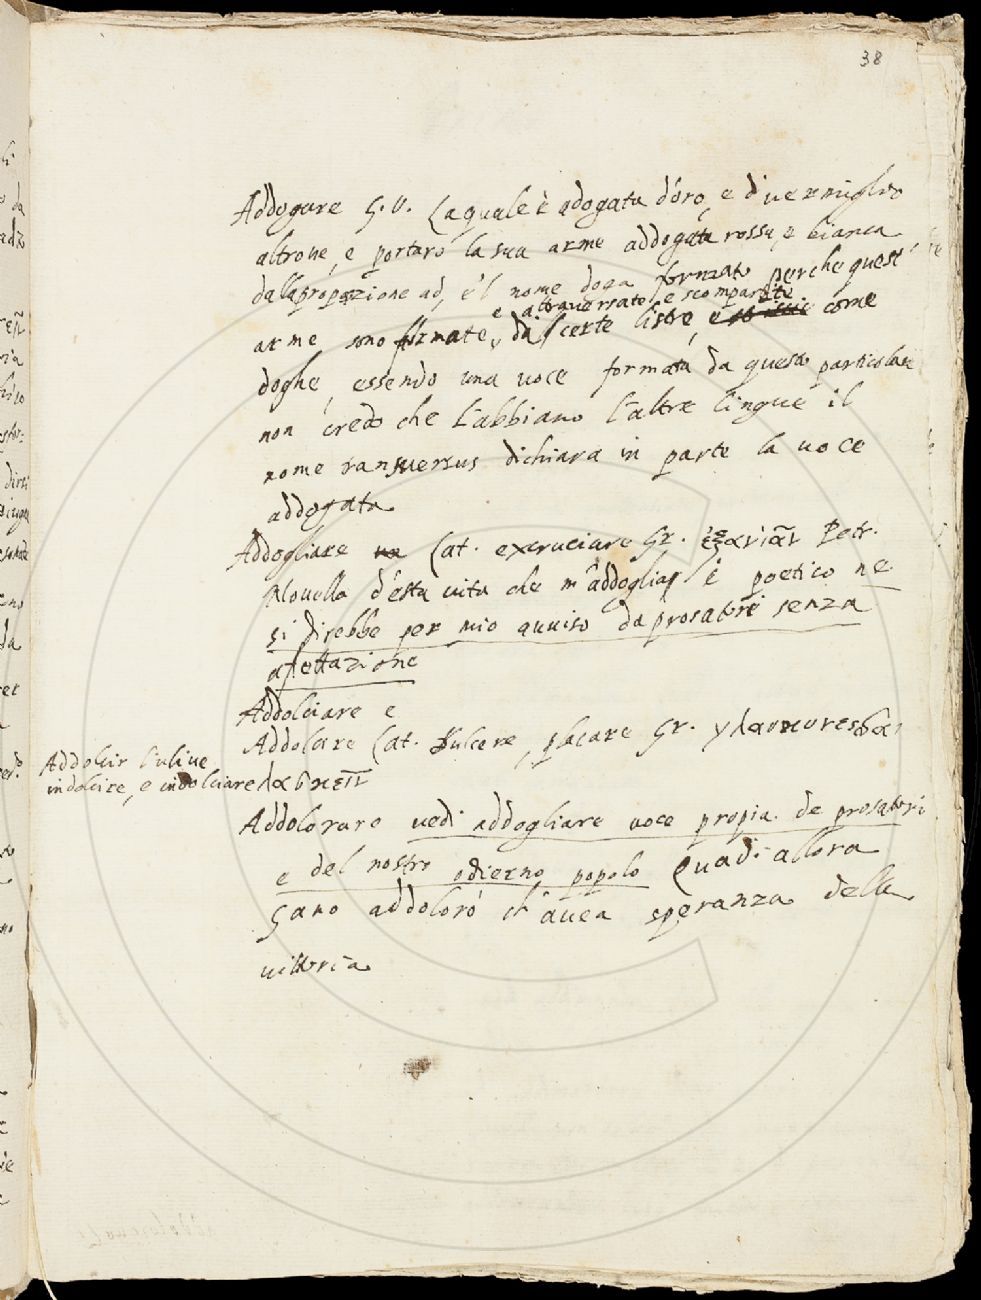 38
Addogare G.V. La quale è adogata d'oro, e di vermiglio
altrove, e portaro la sua arme addogata rossa, e bianca
dalla propozione ad, e'l nome doga formato perche quest'
e attraversato, e scompartite
arme sono formate, da certe liste, come
doghe, essendo una voce formata da questa particolare
non credo che l'abbiano l'altre lingue il
nome transversus dichiara in parte la voce
addogata
Addogliare Lat. excruciare Gr. ἐξανιᾶν Petr.
Novella d'esta vita che m'addoglia è poetico ne
si direbbe per mio avviso da prosatori senza
afettazione
Addolciare e
Addolcire Lat. Dulcere, placare Gr.
Addolcir l'ulive
indolcire, e indolciare
Addolorare vedi addogliare voce propia de prosatori
e del nostro odierno popolo Quadi allora
Gano addolorò ch'avea speranza della
vittoria